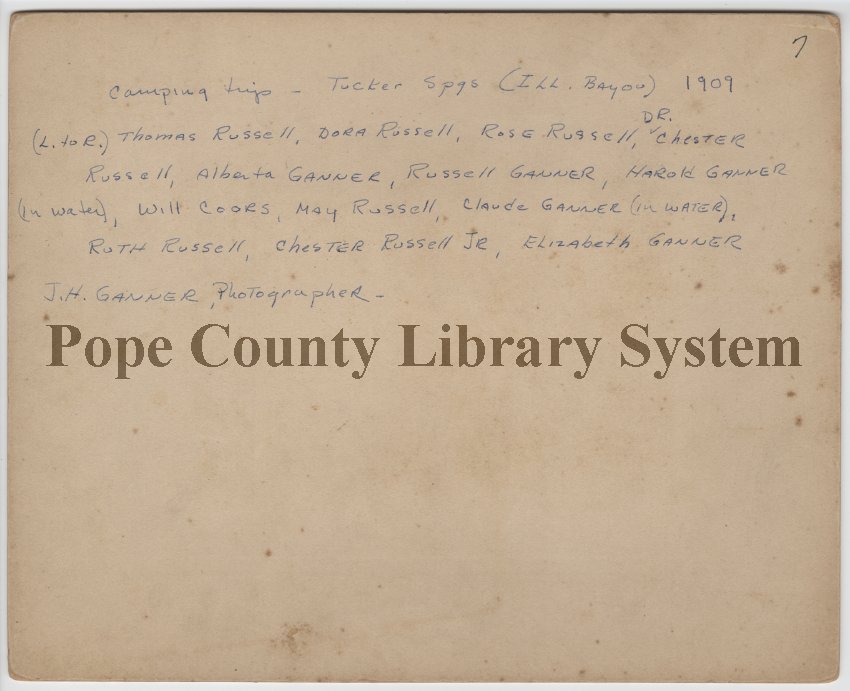 7
Camping trip - Tucker Spgs (Ill. Bayou) 1909
(L. to R.) Thomas Russell, Dora Russell, Rose Russell, DR. Chester
Russell, Alberta Ganner, Russell Ganner, Harold Ganner
(in water), Will Coors, May Russell, Claude Ganner (in water),
Ruth Russell, Chester Russell Jr, Elizabeth Ganner
J.H. Ganner, Photographer -
Pope County Library System